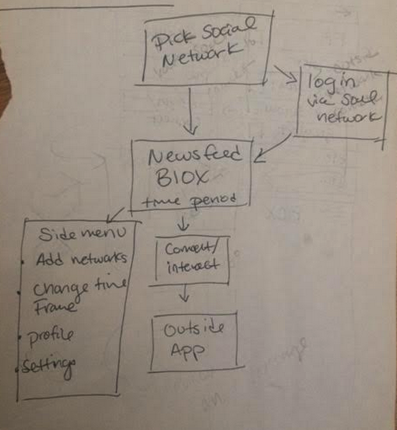 Pick Social
Network
login
via social
network
Newsfeed
BIOX
time period
Side menu
• Add networks
• Change time
Frame
• profile
• Settings
Connect/
interact
Outside
App